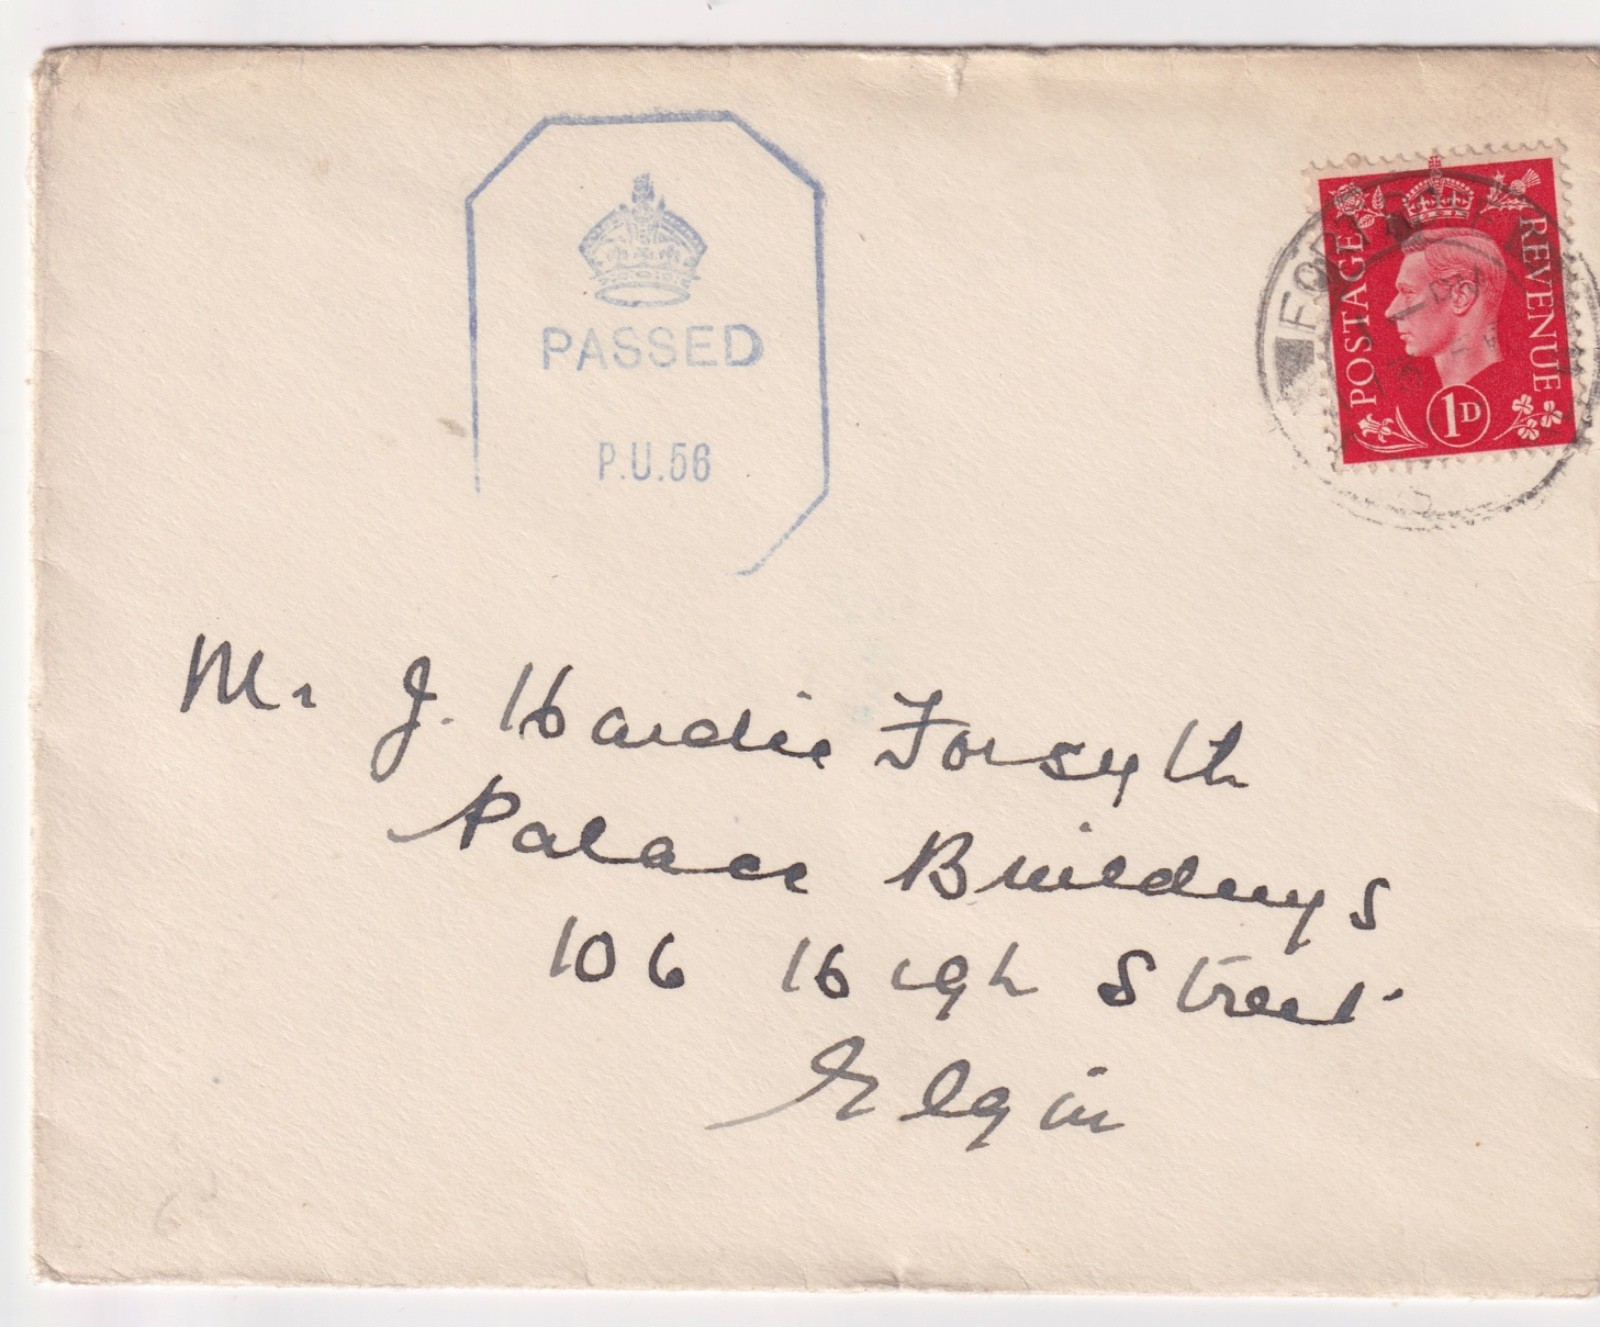 PASSED
P.U.56
POSTAGE
REVENUE
1D
Mr J. Hardie Forsyth
Palace Buildings
106 High Street
Elgin